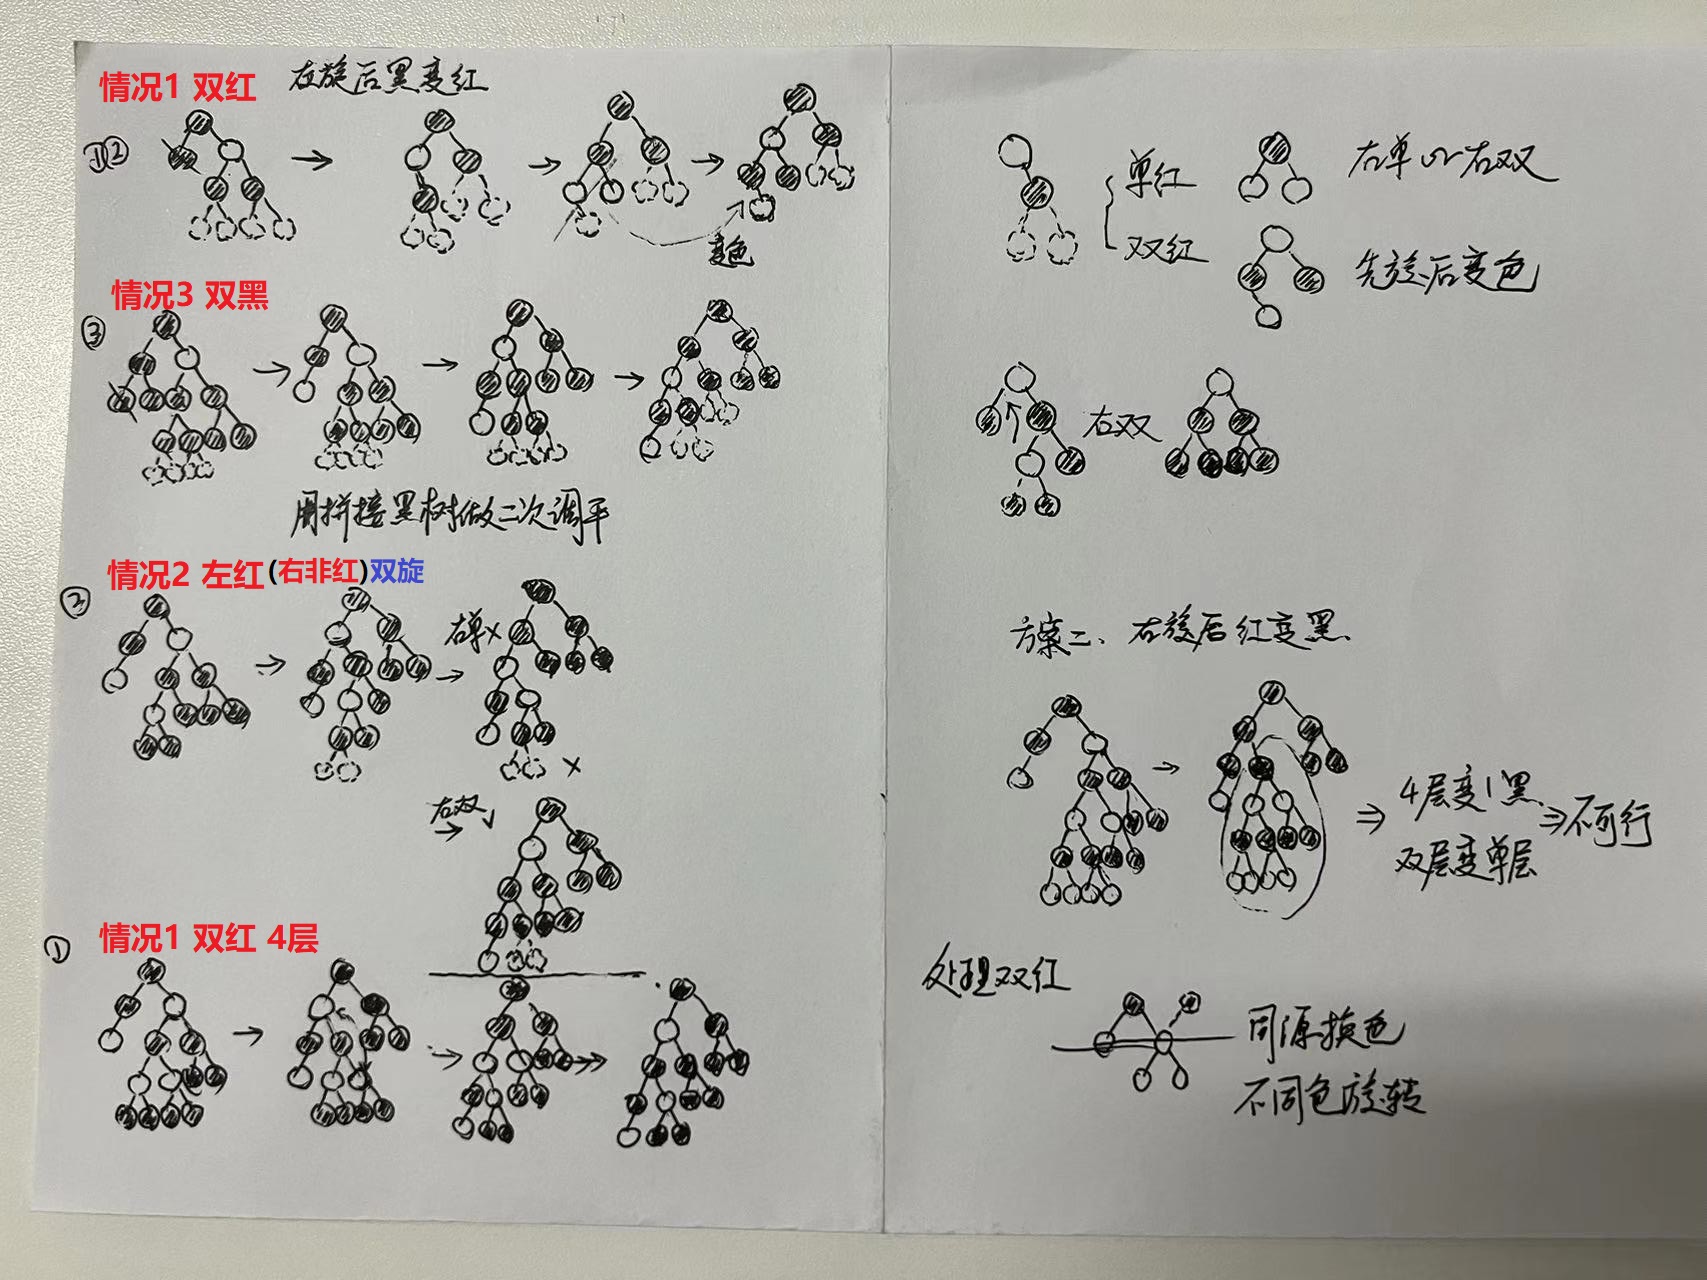 情况1 双红 右旋后黑变红
①②
变色
情况3 双黑
③
用拼接黑树做二次调平
情况2 左红(右非红)双旋
②
右单×
×
右双
情况1 双红 4层
①
单红
双红
右单 or 右双
先旋后变色
右双
方案二、右旋后红变黑、
4层变1黑
双层变单层
⇒不可行
处理双红
同源换色
不同色旋转